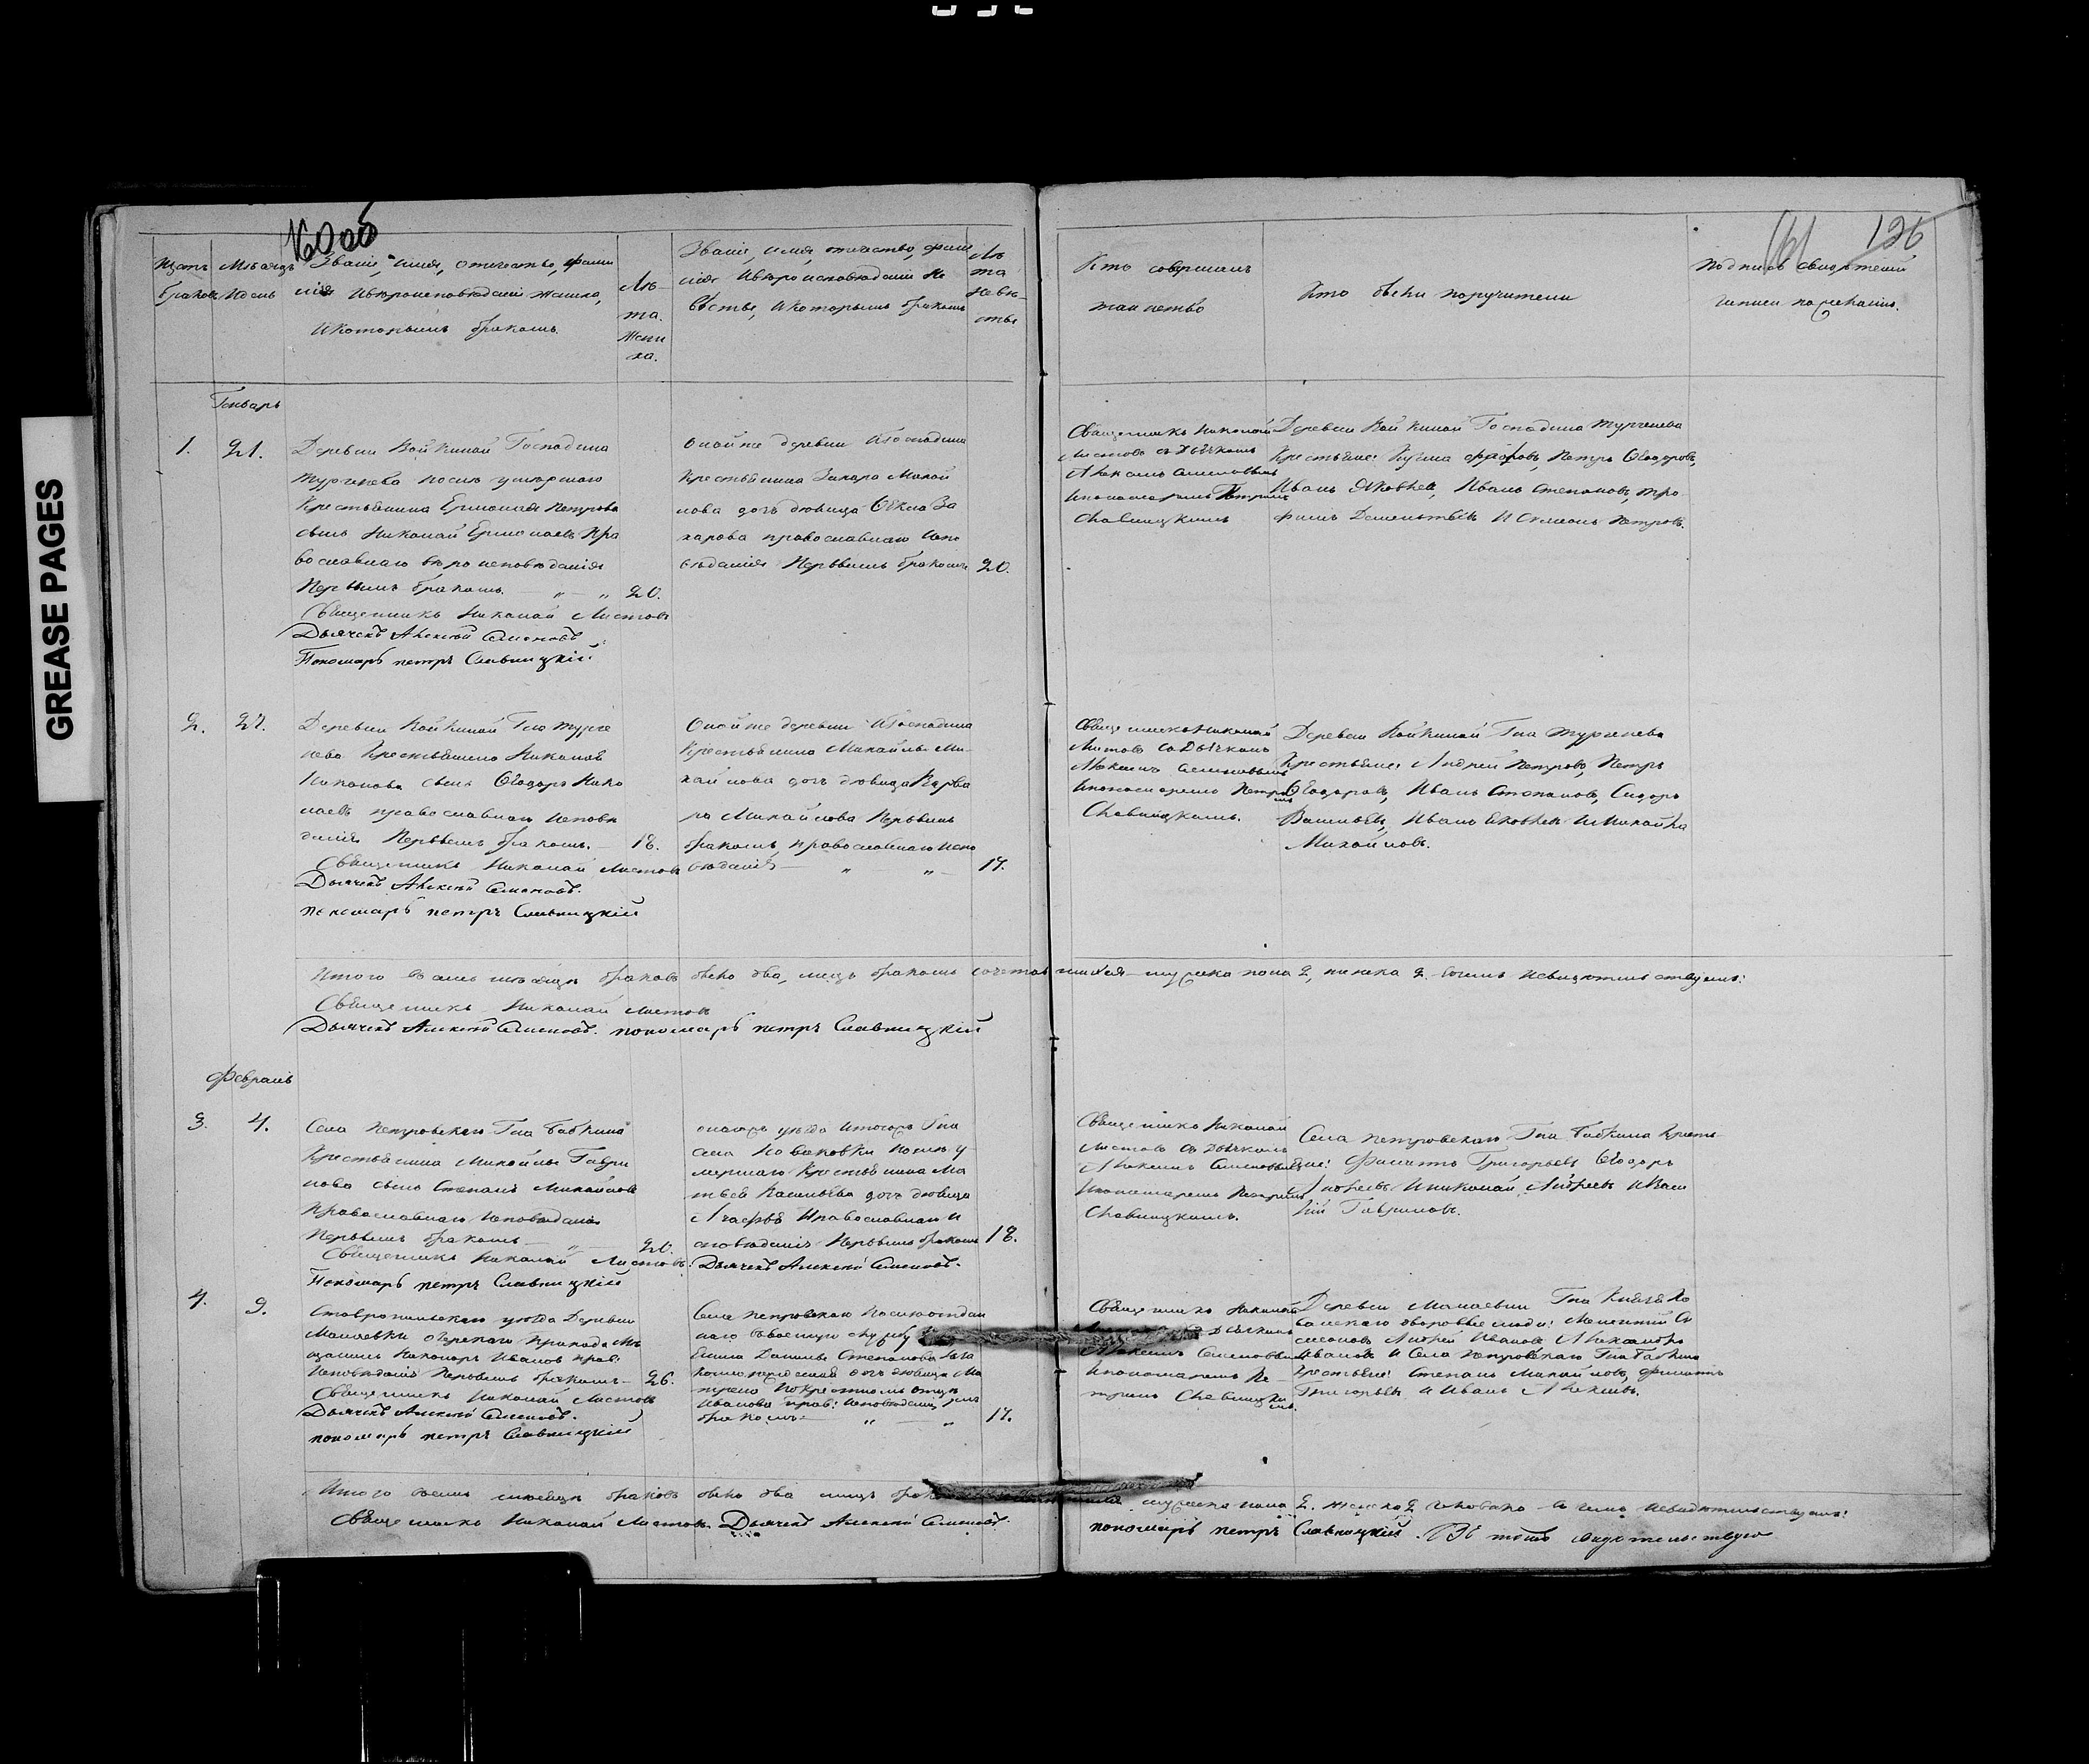 GREASE PAGES
126
Щетъ браковъ
Мѣсяцъ и день
Званіе, имя, отечество, фамилія и вѣроисповѣданіе жениха, и которымъ бракомъ.
Лѣта жениха.
Званіе, имя, отечество, фамилія и вѣроисповѣданіе невѣсты, и которымъ бракомъ
Лѣта невѣсты
Кто совершалъ таинство
Кто были поручители
Подпись свидѣтелей записи по желанію.
Генварь
1.
21.
Деревни Войкиной Господина
Тургенева послѣ умершаго
Крестьянина Ермолая Петрова
сынъ Николай Ермолаевъ Пра
вославнаго вѣроисповѣданія
Первымъ бракомъ. — „ — „
20.
Священникъ Николай Листовъ
Дьячекъ Алексѣй Семеновъ
Пономарь петръ Славницкій
Оной же деревни и Господина
Крестьянина Захара Михай
лова дочь дѣвица Ѳекла За
харова православнаго испо
вѣданія Первымъ бракомъ
20.
Священникъ Николай
Листовъ съ дьячкомъ
Алексѣемъ Семеновымъ
и пономаремъ Петромъ
Славницкимъ
Деревни Войкиной Господина Тургенева
Крестьяне: Кузма Петръ Ѳеодоровъ,
Иванъ Яковлевъ, Иванъ Степановъ, Тро
фимъ Дементьевъ и Семенъ Петровъ.
2.
27.
Деревни Войкиной Гна Турге
нева Крестьянина Николая
сынъ Ѳеодоръ Нико
лаевъ православнаго исповѣ
данія Первымъ бракомъ. —
18.
Священникъ Николай Листовъ
Дьячекъ Алексѣй Семеновъ.
пономарь петръ Славницкій
Оной же деревни и Господина
Крестьянина Михайлы Ми-
хайлова дочь дѣвица Варва
ра Михайлова Первымъ
бракомъ, православнаго испо
вѣданія — „ — „ —
17.
Священникъ Николай
Листовъ съ дьячкомъ
Алексѣемъ Семеновымъ
и пономаремъ Петромъ
Славницкимъ.
Деревни Войкиной Гна Тургенева
Крестьяне: Андрей Петровъ, Петръ
Ѳеодоровъ, Иванъ Степановъ, Сидоръ
Васильевъ, Иванъ Яковлевъ и Михайла
Михайловъ.
Итого въ семъ мѣсяцѣ браковъ было два, лицъ бракомъ сочетавшихся мужеска пола 2, женска 2. въ чемъ и свидѣтельствуемъ:
Священникъ Николай Листовъ
Дьячекъ Алексѣй Семеновъ. пономарь петръ Славницкій
Февраль
3.
4.
Села Петровскаго Гна Бабкина
Крестьянина Михайлы Гаври
лова сынъ Степанъ Михайловъ
Православнаго исповѣданія
Первымъ бракомъ — „ —
20.
Священникъ Николай Листовъ.
Пономарь петръ Славницкій
онагожъ уѣзда и тогожъ Гна
села послѣ у
мершаго Крестьянина Ма
твея Васильева дочь дѣвица
Агафья Православнаго и
сповѣданія Первымъ бракомъ
18.
Дьячекъ Алексѣй Семеновъ.
Священникъ Николай
Листовъ съ дьячкомъ
Алексѣемъ Семеновымъ
и пономаремъ Петромъ
Славницкимъ.
Села Петровскаго Гна Бабкина Кресть-
яне: Филиппъ Григорьевъ, Ѳеодоръ
Андреевъ и Николай Андреевъ и Васи
лій Гавриловъ.
4.
9.
Ставропольскаго уѣзда Деревни
прихода Мѣ
щанинъ Никаноръ Ивановъ прав:
исповѣданія Первымъ бракомъ —
26.
Священникъ Николай Листовъ
Дьячекъ Алексѣй Семеновъ.
пономарь петръ Славницкій
Села Петровскаго послѣ отдан
наго въ военную службу
Данилы Степанова
дочь дѣвица Ма
трена по крестномъ отцѣ
Иванова прав: исповѣданія
бракомъ — „ — „
17.
Священникъ Николай
дьячкомъ
Алексѣемъ Семеновымъ
и пономаремъ Пе-
тромъ Славницки
мъ.
Деревни Гна Князя
дворовые люди:
Андрей Ивановъ, Александръ
Ивановъ и Села Петровскаго Гна Бабкина
Крестьяне: Степанъ Михайловъ, Филиппъ
Григорьевъ и Иванъ Алексѣевъ.
Итого въ семъ мѣсяцѣ браковъ было два лицъ мужеска пола 2. женска 2 въ чемъ и свидѣтельствуемъ:
Священникъ Николай Листовъ. Дьячекъ Алексѣй Семеновъ.
пономарь петръ Славницкій. Въ томъ свидѣтельствую